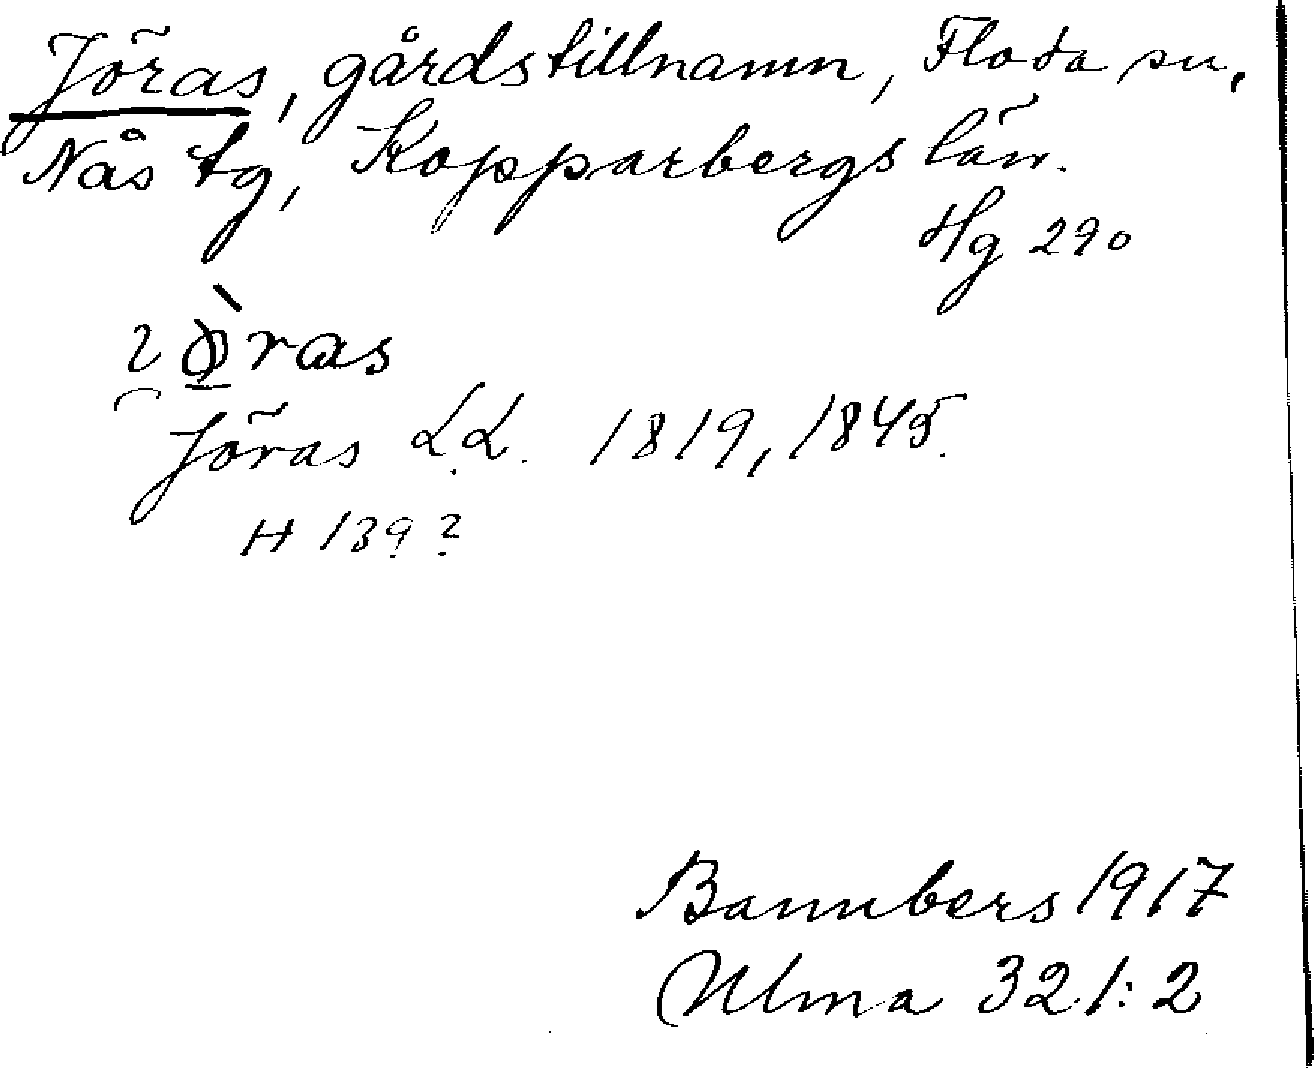 Jöras, gårdstillnamn, Floda sn,
Nås tg, Kopparbergs län.
Hg 290
Jöras L.L. 1819, 1845.
H 139?
Bannbers 1917
Ulma 321:2